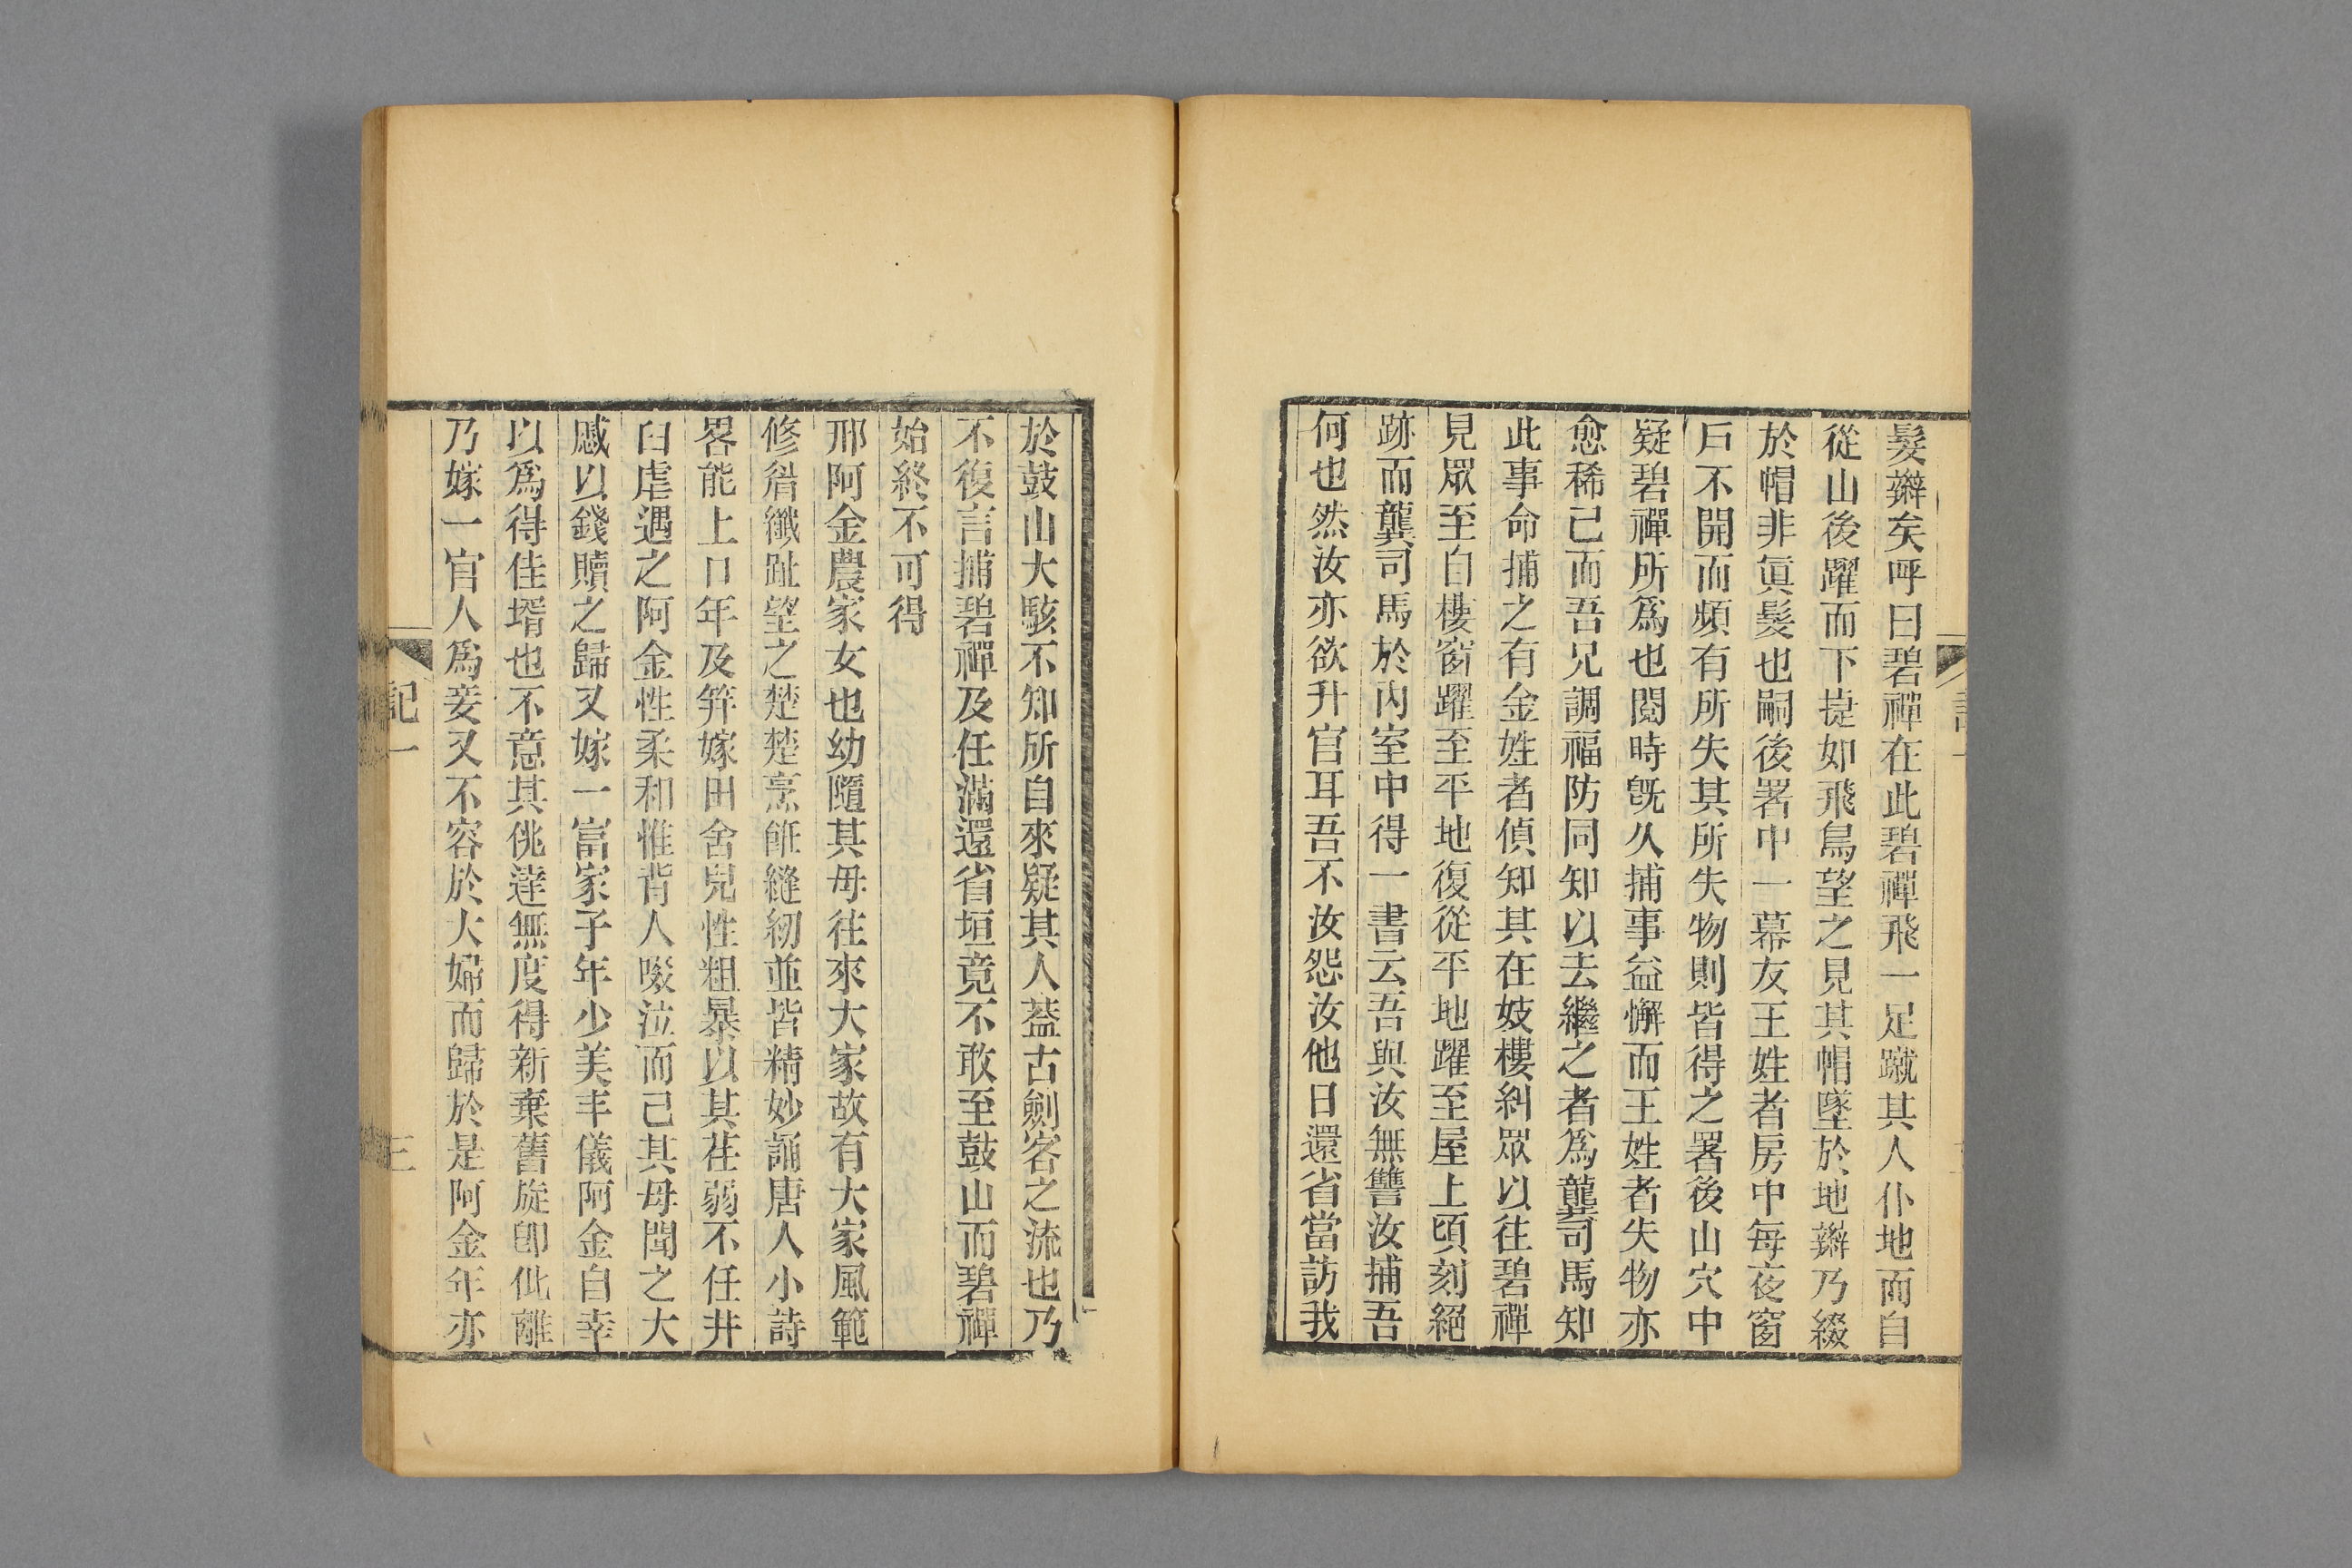 髮辮矣呼曰碧禪在此碧禪飛一足蹴其人仆地而自
從山後躍而下捷如飛鳥望之見其帽墜於地辮乃綴
於帽非眞髮也嗣後署中一幕友王姓者房中每夜窗
戶不開而頻有所失其所失物則皆得之署後山穴中
疑碧禪所爲也閱時旣久捕事益懈而王姓者失物亦
愈稀己而吾兄調福防同知以去繼之者爲龔司馬知
此事命捕之有金姓者偵知其在妓樓糾眾以往碧禪
見眾至自樓窗躍至平地復從平地躍至屋上頃刻絕
跡而龔司馬於內室中得一書云吾與汝無讐汝捕吾
何也然汝亦欲升官耳吾不汝怨汝他日還省當訪我
於鼓山大駭不知所自來疑其人葢古劍客之流也乃
不復言捕碧禪及任滿還省垣竟不敢至鼓山而碧禪
始終不可得
邢阿金農家女也幼隨其母往來大家故有大家風範
修眉纖趾望之楚楚烹飪縫紉並皆精妙誦唐人小詩
畧能上口年及笄嫁田舍兒性粗暴以其荏弱不任井
臼虐遇之阿金性柔和惟背人啜泣而己其母聞之大
慼以錢贖之歸又嫁一富家子年少美丰儀阿金自幸
以爲得佳壻也不意其佻達無度得新棄舊旋卽仳離
乃嫁一官人爲妾又不容於大婦而歸於是阿金年亦
記一
三